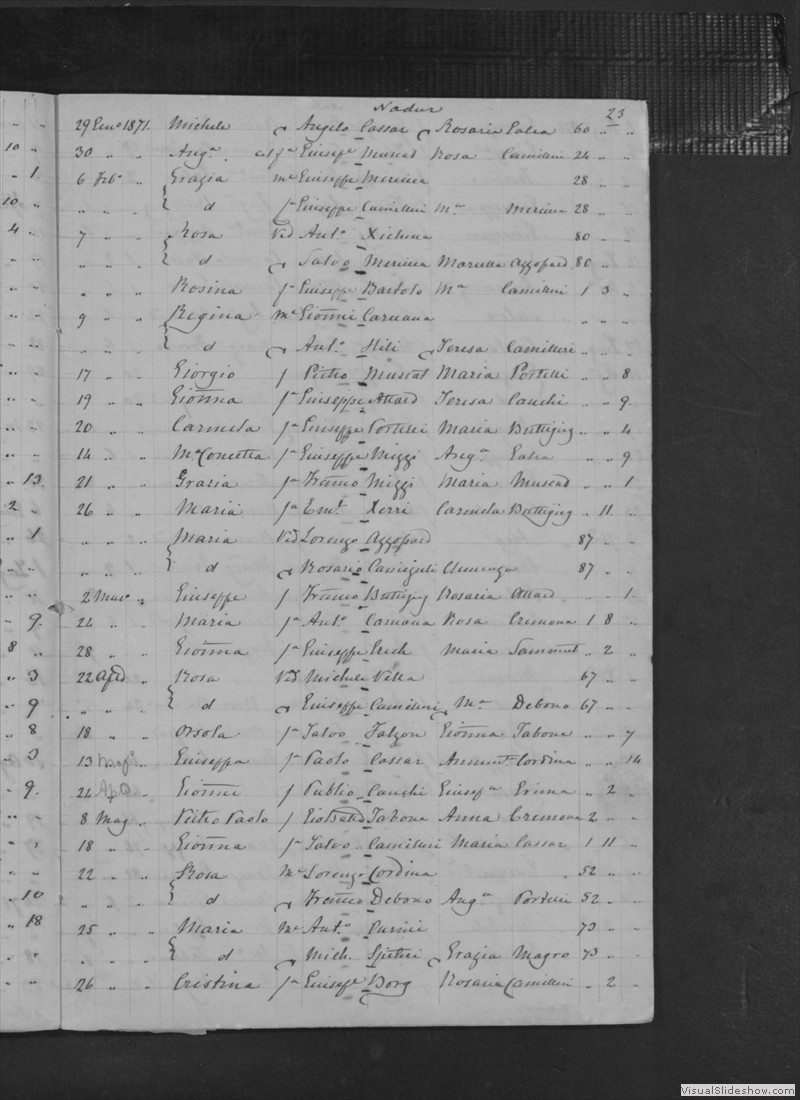 Nadur 23
29 Geno 1871. Michele Angelo Cassar Rosaria Galea 60 " "
10 " 30 " " Anga Giuspe Muscat Rosa Camilleri 24 " "
" 1. 6 Febo " Grazia me Giuseppe Mercieca 28 " "
10 " " " " d fa Giuseppe Camilleri Ma Mercieca 28 " "
4 " 7 " " Rosa Vid Anto. Xicluna 80 " "
" " " " " d Salvo Mercieca Azzopard 80 " "
" " " " " Rosina fa Giusepe Bartolo Ma Camilleri 1 3 "
" " 9 " " Regina me Gionni Caruana " " "
" " " " " d Anto. Hili Teresa Camilleri " " "
" " 17 " " Giorgio f Pietro Muscat Maria Portelli " " 8
" " 19 " " Gionna fa Giuseppe Attard Teresa Cauchi " " 9
" " 20 " " Carmela fa Giuseppe Portelli Maria Buttigieg " " 4
" " 14 " " Ma Concetta fa Giuseppe Mizzi Anga Galea " " 9
" 13. 21 " " Grazia fa Franco Mizzi Maria Muscat " " 1
2 " 26 " " Maria fa Eml. Xerri Carmela Buttigieg " 11 "
" 1 " " " Maria Vid Lorenzo Azzopard 87 " "
" " " " " d Rosario 87 " "
" " 2 Mar. " Giuseppe f Franco Buttigieg Rosaria Attard " " 1.
" 9. 24 " " Maria fa Anto. Caruana Rosa Cremona 1 8 "
8 " 28 " " Gionna fa Giuseppe Grech Maria Sammut " 2 "
" 3 22 Aple " Rosa Vid Michele Vella 67 " "
" 9 " " " d Giuseppe Camilleri Ma Debono 67 " "
" 8 18 " " Orsola fa Salvo Falzon Gionna Tabone " " 7
" 13 Magio " Giuseppa fa Paolo Cassar Cordina " " 14
" 9. 24 Ap " Gionni f Publio Cauchi Giuspa " 2 "
" " 8 Mag " Pietro Paolo f Tabone Anna Cremona 2 " "
" " 18 " " Gionna fa Salvo Camilleri Maria Cassar 1 11 "
" " 22 " " Rosa Me Lorenzo Cordina " 52 " "
" 10 " " " d Franco Debono Anga Portelli 52 " "
" 18 25 " " Maria Me Anto. 73 " "
" " " " " d Mich. Spiteri Grazia Magro 73 " "
" " 26 " " Cristina fa Giuspe Borg Rosaria Camilleri " 2 "
VisualSlideshow.com